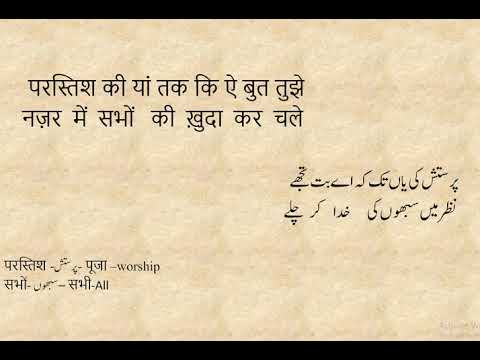 परस्तिश की यां तक कि ऐ बुत तुझे
नज़र में सभों की ख़ुदा कर चले
پرستش کی یاں تک کہ اے بت تجھے
نظر میں سبھوں کی خدا کر چلے
परस्तिश -پرستش- पूजा –worship
सभों- سبھوں – सभी-All